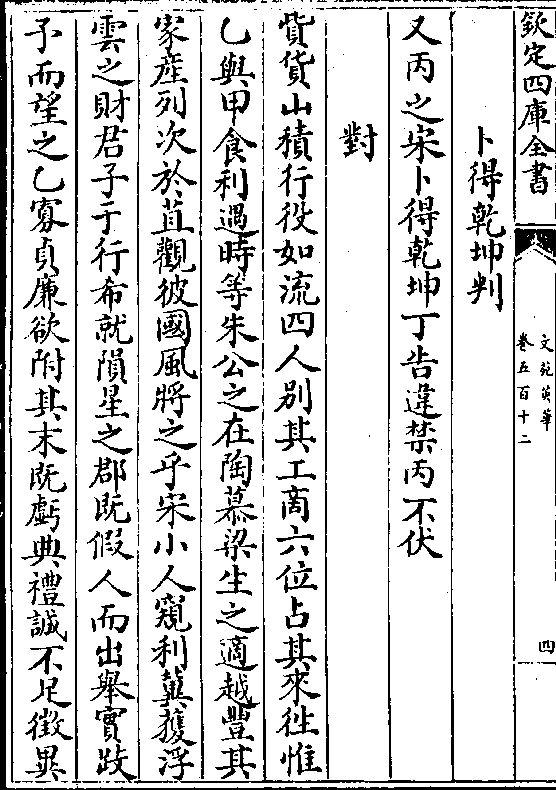 欽定四庫全書
文苑英華
卷五百十二
四
卜得乾坤判
又丙之宋卜得乾坤丁告違禁丙不伏
對
貲貨山積行役如流四人別其工商六位占其來徃惟
乙與甲食利遇時等朱公之在陶慕梁生之適越豐其
家產列次於苴觀彼國風將之乎宋小人窺利冀獲浮
雲之財君子于行布就隕星之郡既假人而出舉實跂
予而望之乙寡貞廉欲附其末既虧典禮誠不足徵異